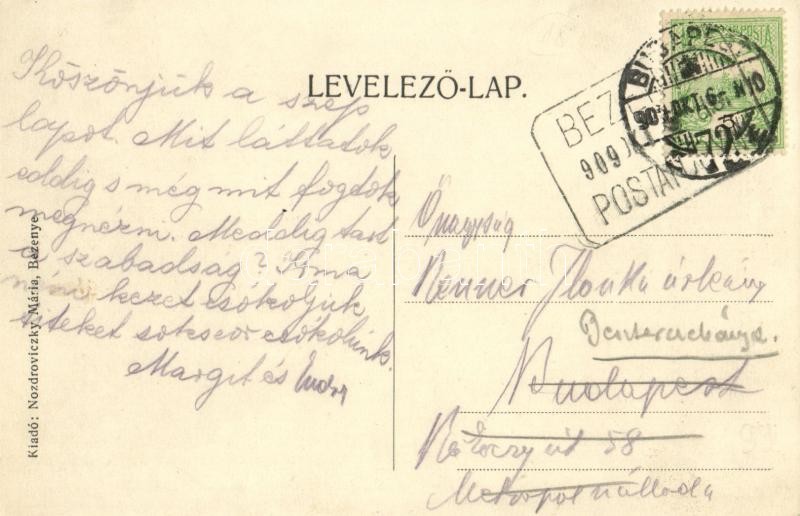 LEVELEZŐ-LAP.
Köszönjük a szép
lapot. Mit láttatok
eddig s még mit fogtok
megnézni. Meddig tart
a szabadság? Irma
néni kezét csókoljuk
titeket sokszor csókolunk.
Margit és Endre
Kiadó: Nozdroviczky Mária, Bezenye.
BUDAPEST
909 OKT. 6
72
BEZ
909
POSTA
Őnagysága
Renner Ilonka úrleány
Budapest
Rákóczy út 58
Metropol szálloda